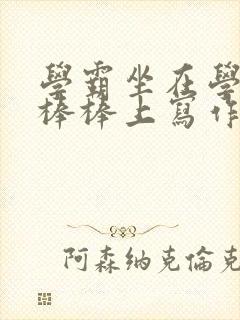 學霸坐在學
棒棒上寫作
阿森纳克倫克